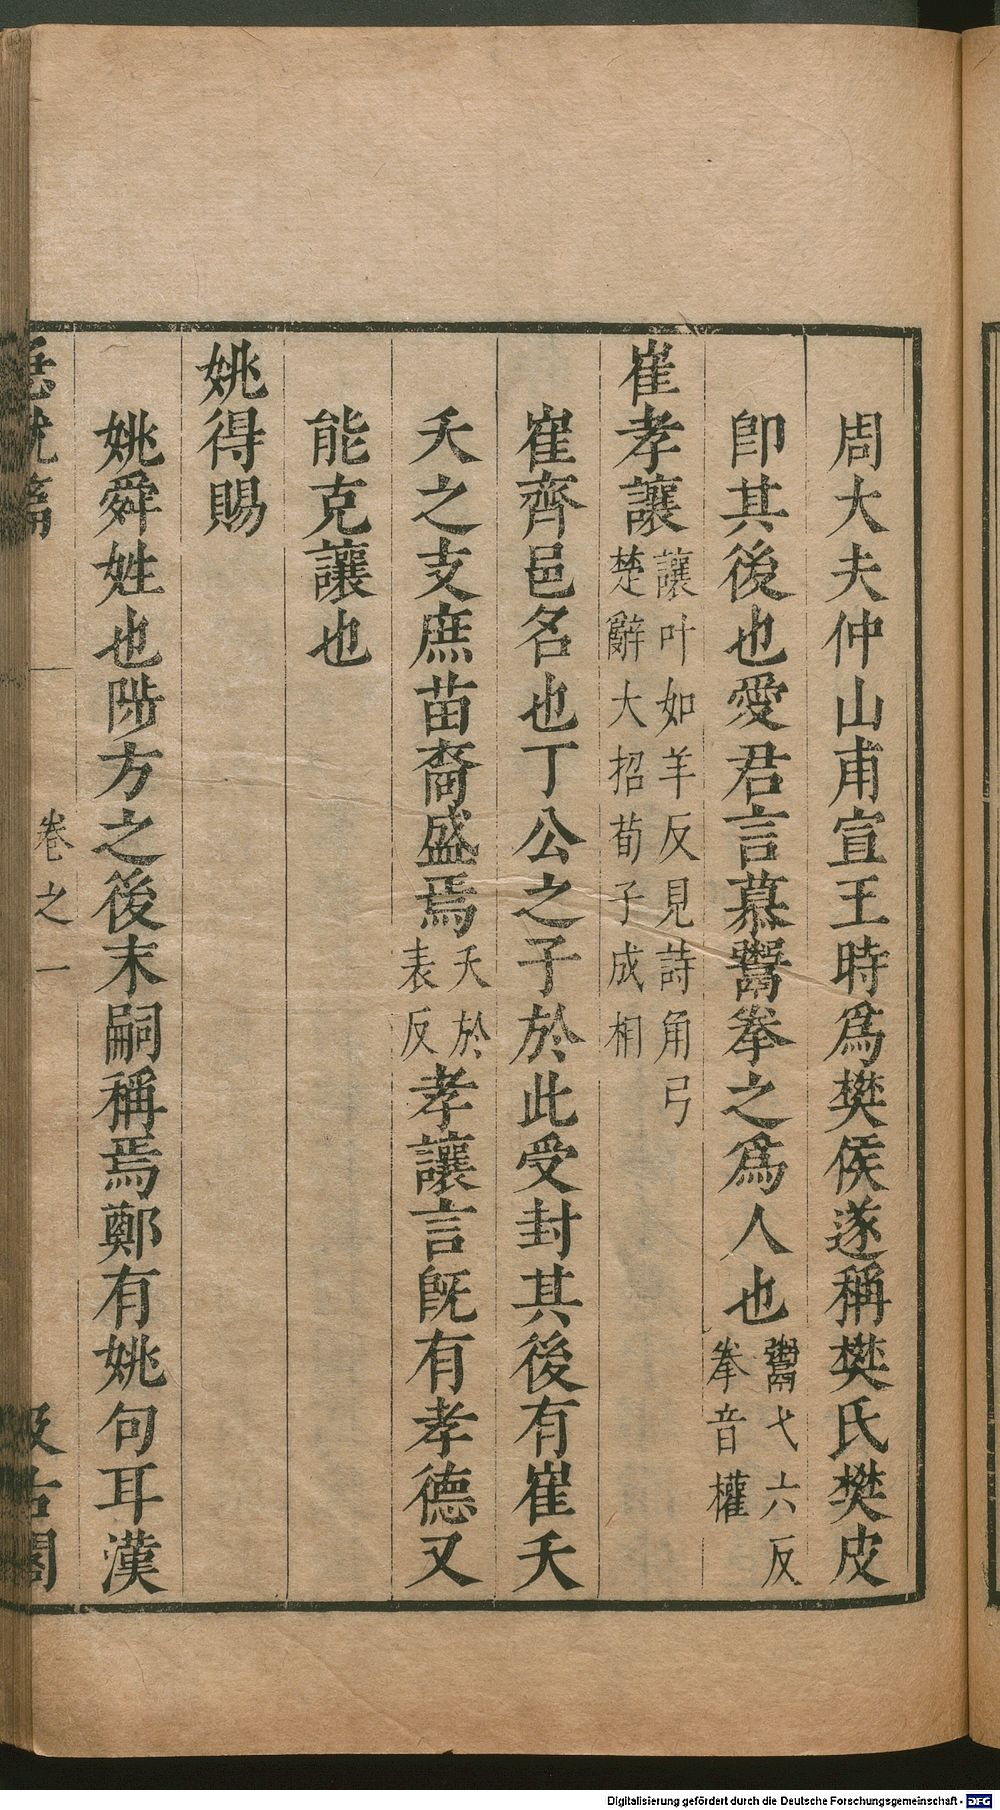 周大夫仲山甫宣王時爲樊侯遂稱樊氏樊皮
卽其後也愛君言慕鬻拳之爲人也鬻弋六反拳音權
崔孝讓讓叶如羊反見詩角弓楚辭大招荀子成相
崔齊邑名也丁公之子於此受封其後有崔夭
夭之支庶苗裔盛焉夭於表反孝讓言旣有孝德又
能克讓也
姚得賜
姚舜姓也陟方之後末嗣稱焉鄭有姚句耳漢
急就篇 卷之一 汲古閣
Digitalisierung gefördert durch die Deutsche Forschungsgemeinschaft - DFG